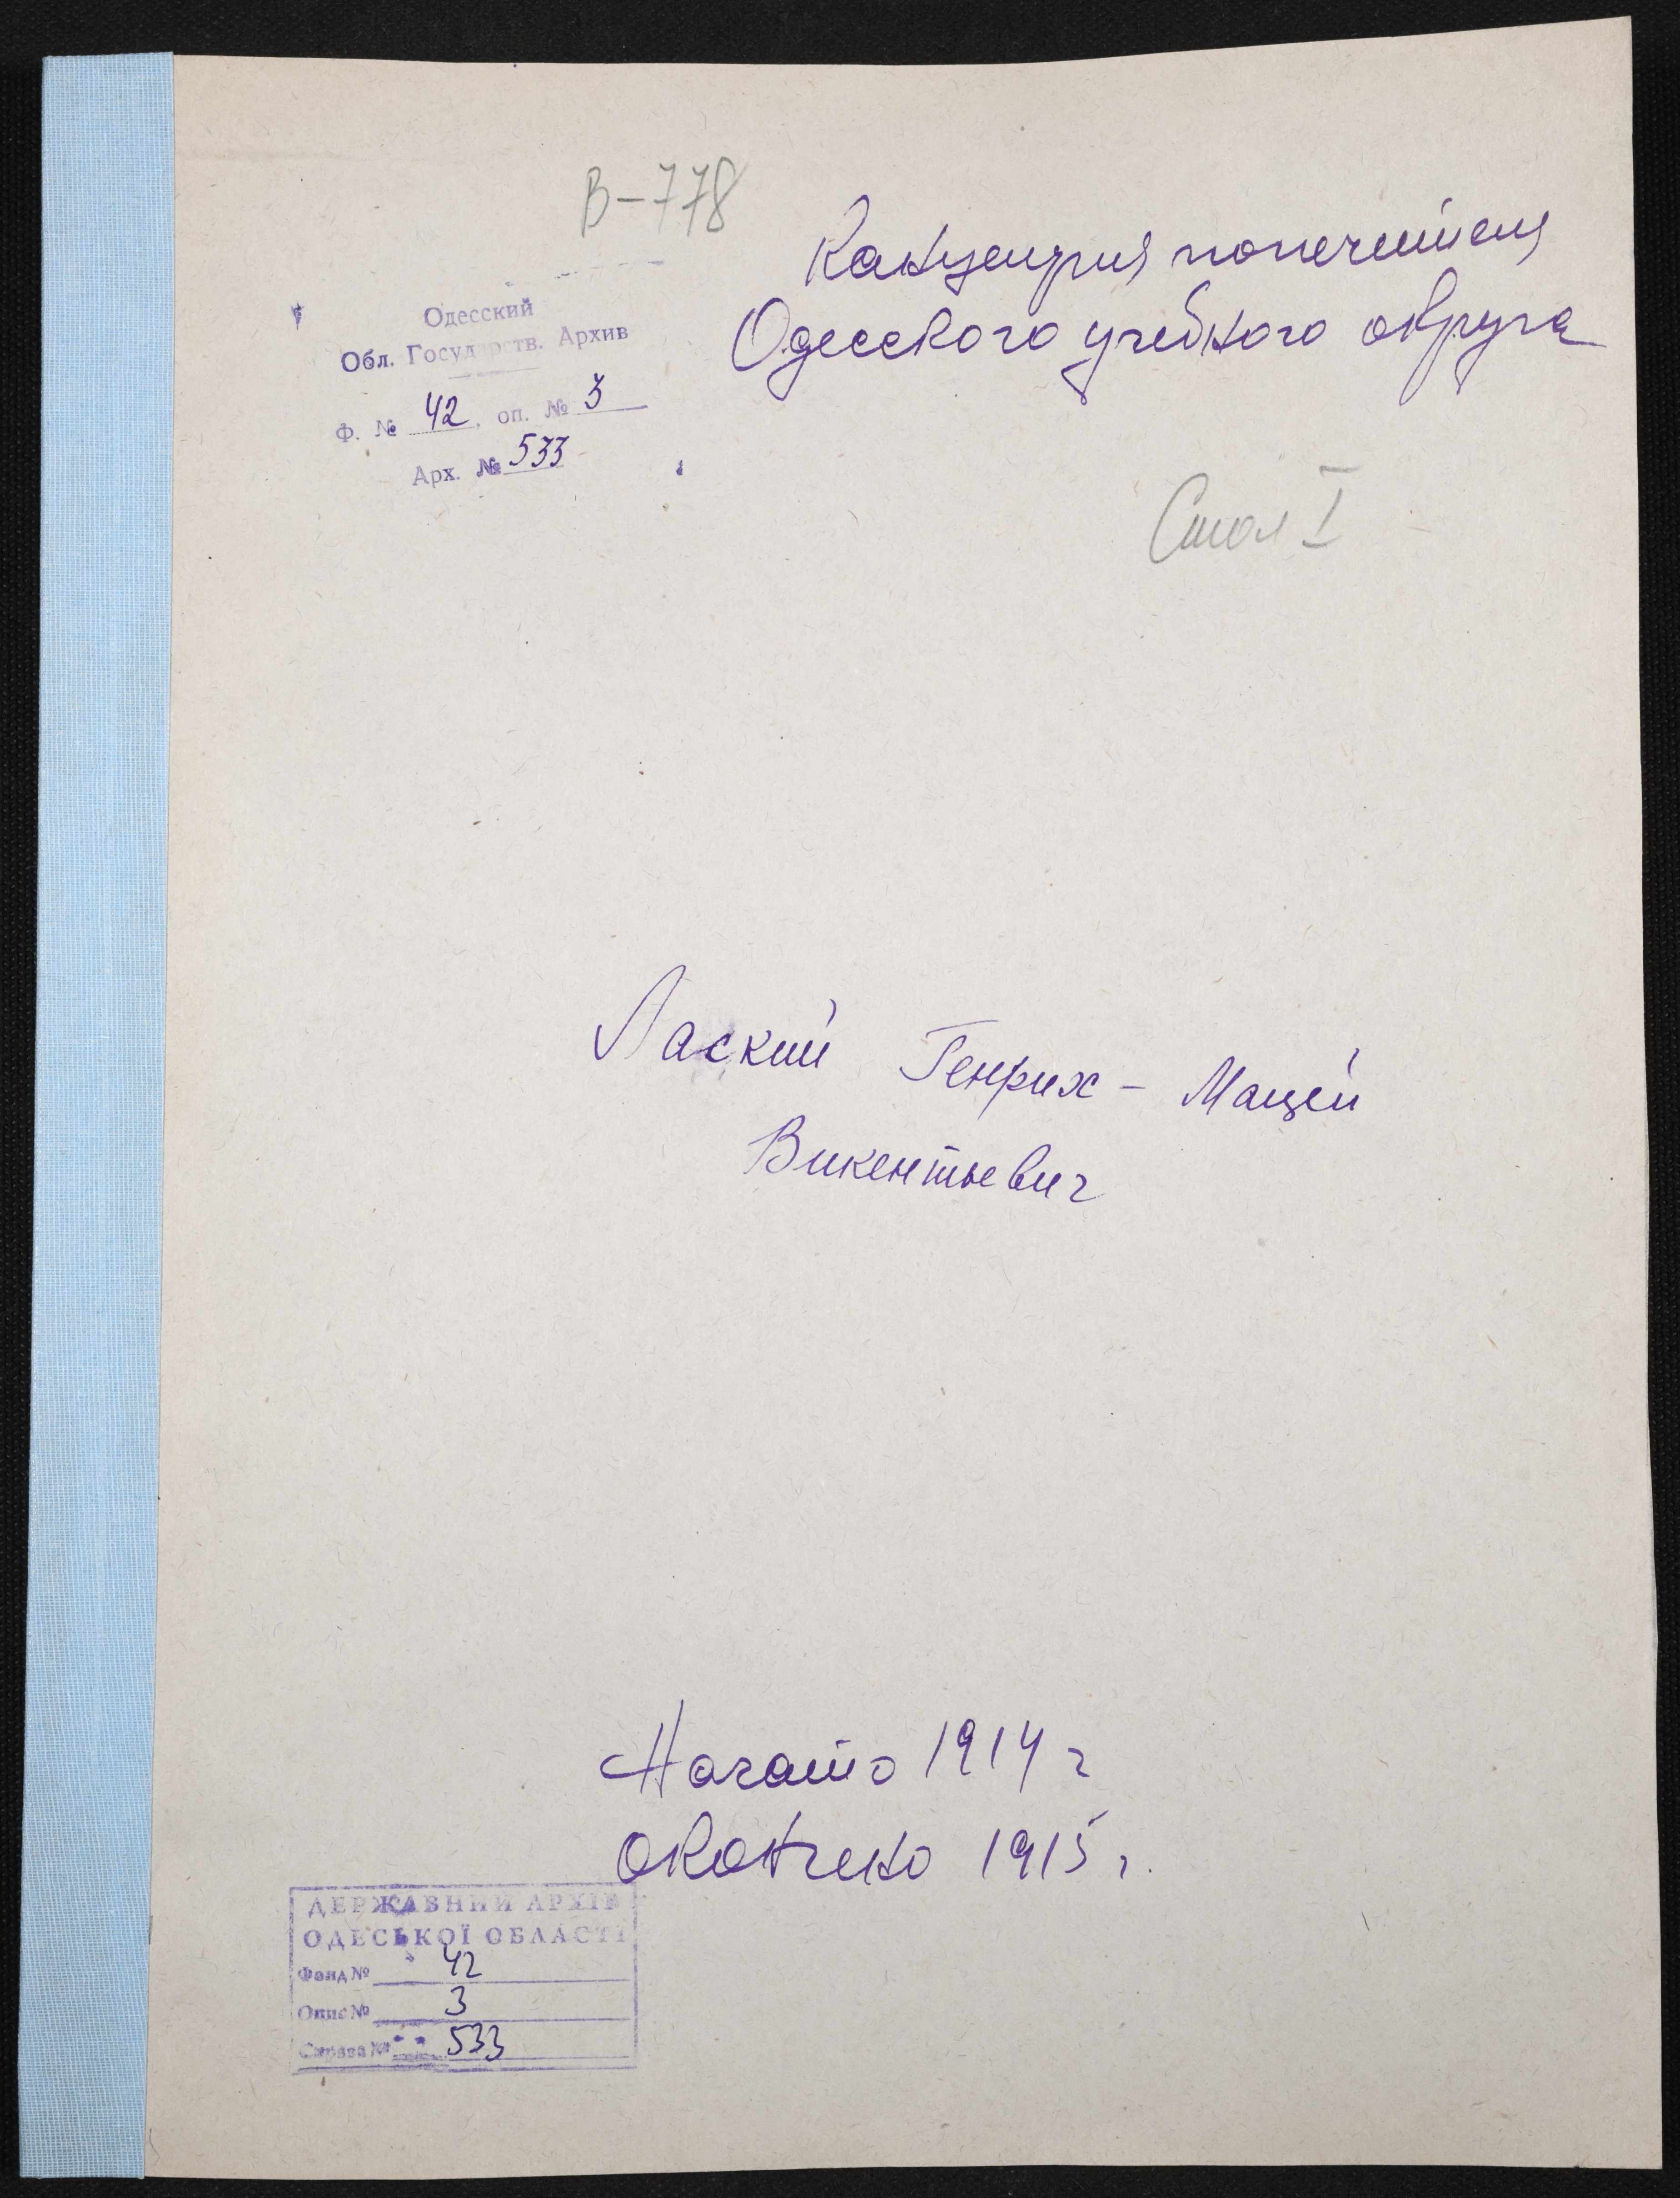 В-778
Канцелярия попечителя
Одесского учебного округа
Одесский
Обл. Государств. Архив
Ф. № 42, оп. № 3
Арх. № 533
Стол I
Лаский Генрих - Мацей
Викентьевич
Начато 1914 г
Окончено 1915 г.
ДЕРЖАВНИЙ АРХІВ
ОДЕСЬКОЇ ОБЛАСТІ
Фонд № 42
Опис № 3
Справа № 533